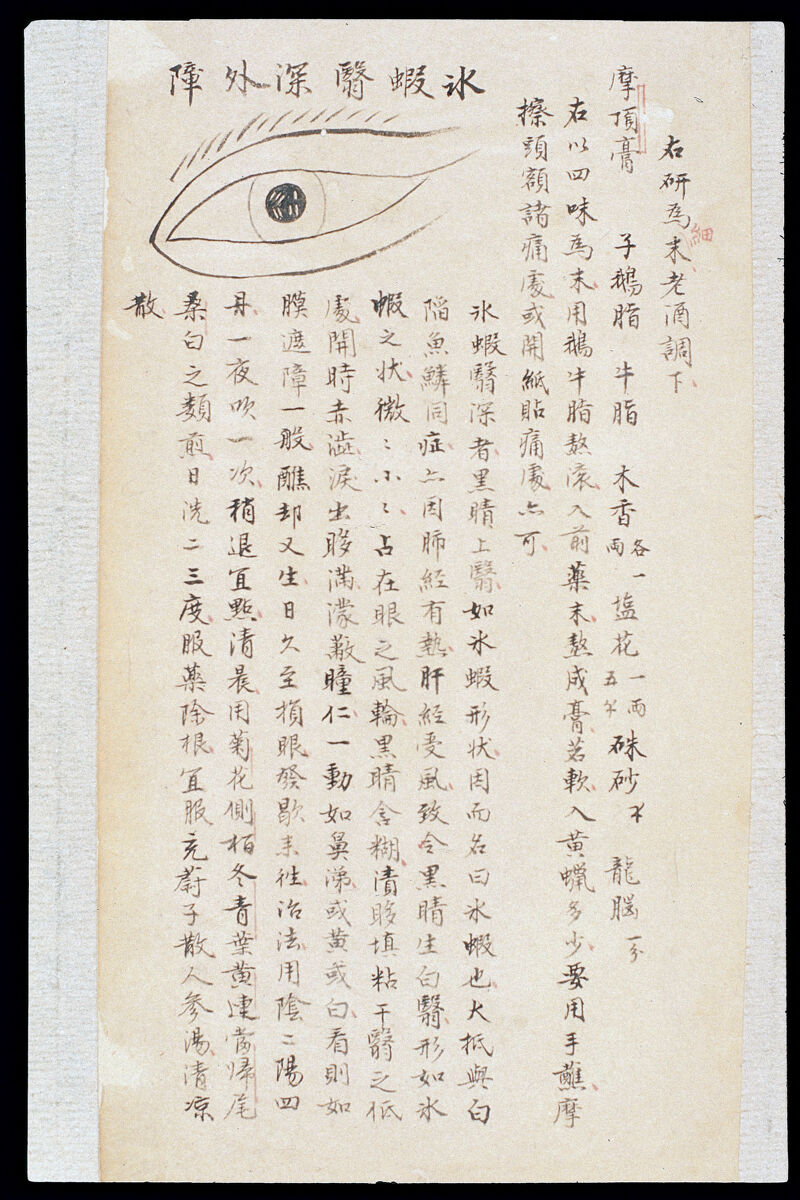 右研為末老酒調下
細
摩頂膏　子鵝脂　牛脂　木香各一兩　塩花一兩五 硃砂　龍腦一分
右以四味為末用鵝牛脂熬滚入前藥末熬成膏若軟入黃蠟多少要用手蘸摩
擦頭額諸痛處或開紙貼痛處亦可
氷蝦翳深外障
氷蝦翳深者黑睛上翳如氷蝦形状因而名曰氷蝦也大抵與白
陷魚鱗同症亦因肺經有熱肝經受風致令黑睛生白翳形如氷
蝦之状微〻小〻占在眼之風輪黑睛含糊漬眵填粘于翳之低
處開時赤澁淚出眵滿濛蔽瞳仁一動如鼻涕或黃或白看則如
膜遮障一般醮却又生日久至損眼發歇来往治法用陰二陽四
丹一夜吹一次稍退宜點清晨用菊花側栢冬青葉黃連當歸尾
桑白之類煎日洗二三度服藥除根宜服充蔚子散人參湯清凉
散